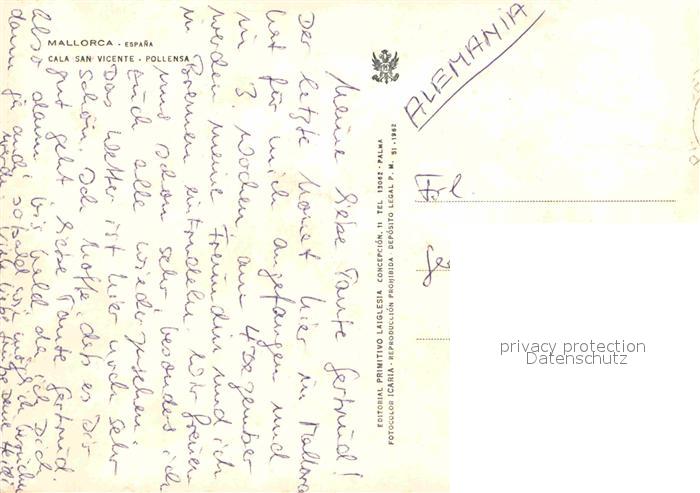 MALLORCA - ESPAÑA
CALA SAN VICENTE - POLLENSA
Meine liebe Tante Gertrud!
Der letzte Monat hier in Mallorca
hat für mich angefangen und
in 3 Wochen, am 4 Dezember
werden meine Freundin und ich
in Bremen eintrudeln. Wir freuen
uns schon sehr, besonders ich
Euch alle wiederzusehen.
Das Wetter ist hier noch sehr
schön. Ich hoffe, daß es Dir
gut geht liebe Tante Gertrud.
Also dann, bis bald, da ich Dich
dann ja auch sobald wie möglich besuchen
werde. Viele liebe Grüße Deine Heidi
EDITORIAL PRIMITIVO LAIGLESIA CONCEPCIÓN, 11 TEL 13062 - PALMA
FOTOCOLOR ICARIA - REPRODUCCIÓN PROHIBIDA - DEPÓSITO LEGAL P. M. 51 - 1962
ALEMANIA
Frl.
privacy protection
Datenschutz